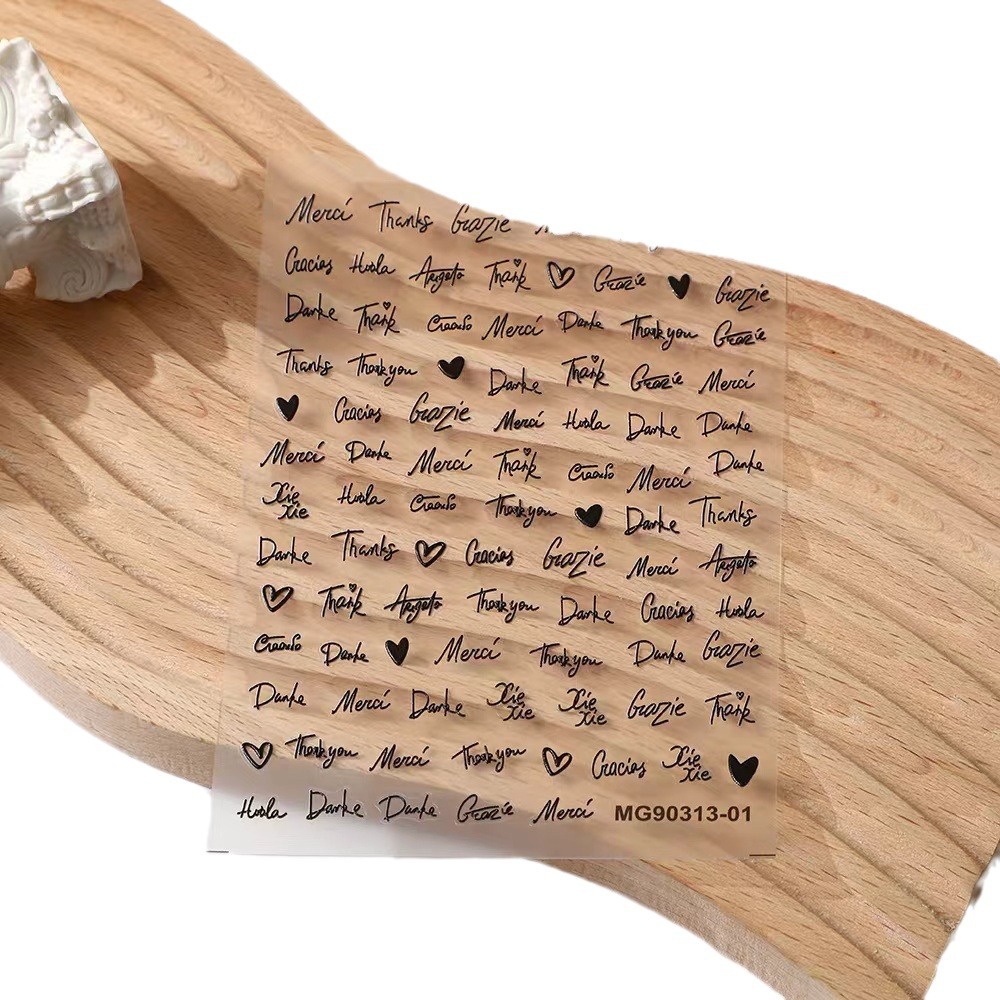 Mercí Thanks Grazie
Gracias Hvala Arigato Thank Grazie Grazie
Danke Thank Mercí Danke Thank you Grazie
Thanks Thank you Danke Thank Grazie Mercí
Gracias Grazie Mercí Hvala Danke Danke
Mercí Danke Mercí Thank Mercí Danke
Xie Hvala Thank you Danke Thanks
Xie
Danke Thanks Gracias Grazie Mercí Arigato
Thank Arigato Thank you Danke Gracias Hvala
Danke Mercí Thank you Danke Grazie
Danke Mercí Danke Xie Xie Grazie Thank
Xie Xie
Thank you Mercí Thank you Gracias Xie
Xie
Hvala Danke Danke Grazie Mercí MG90313-01